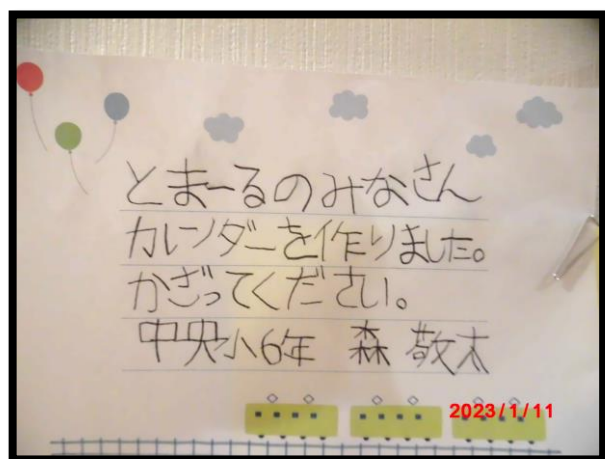 とまーるのみなさん
カレンダーを作りました。
かざってください。
中央小6年 森 敬太
2023/1/11